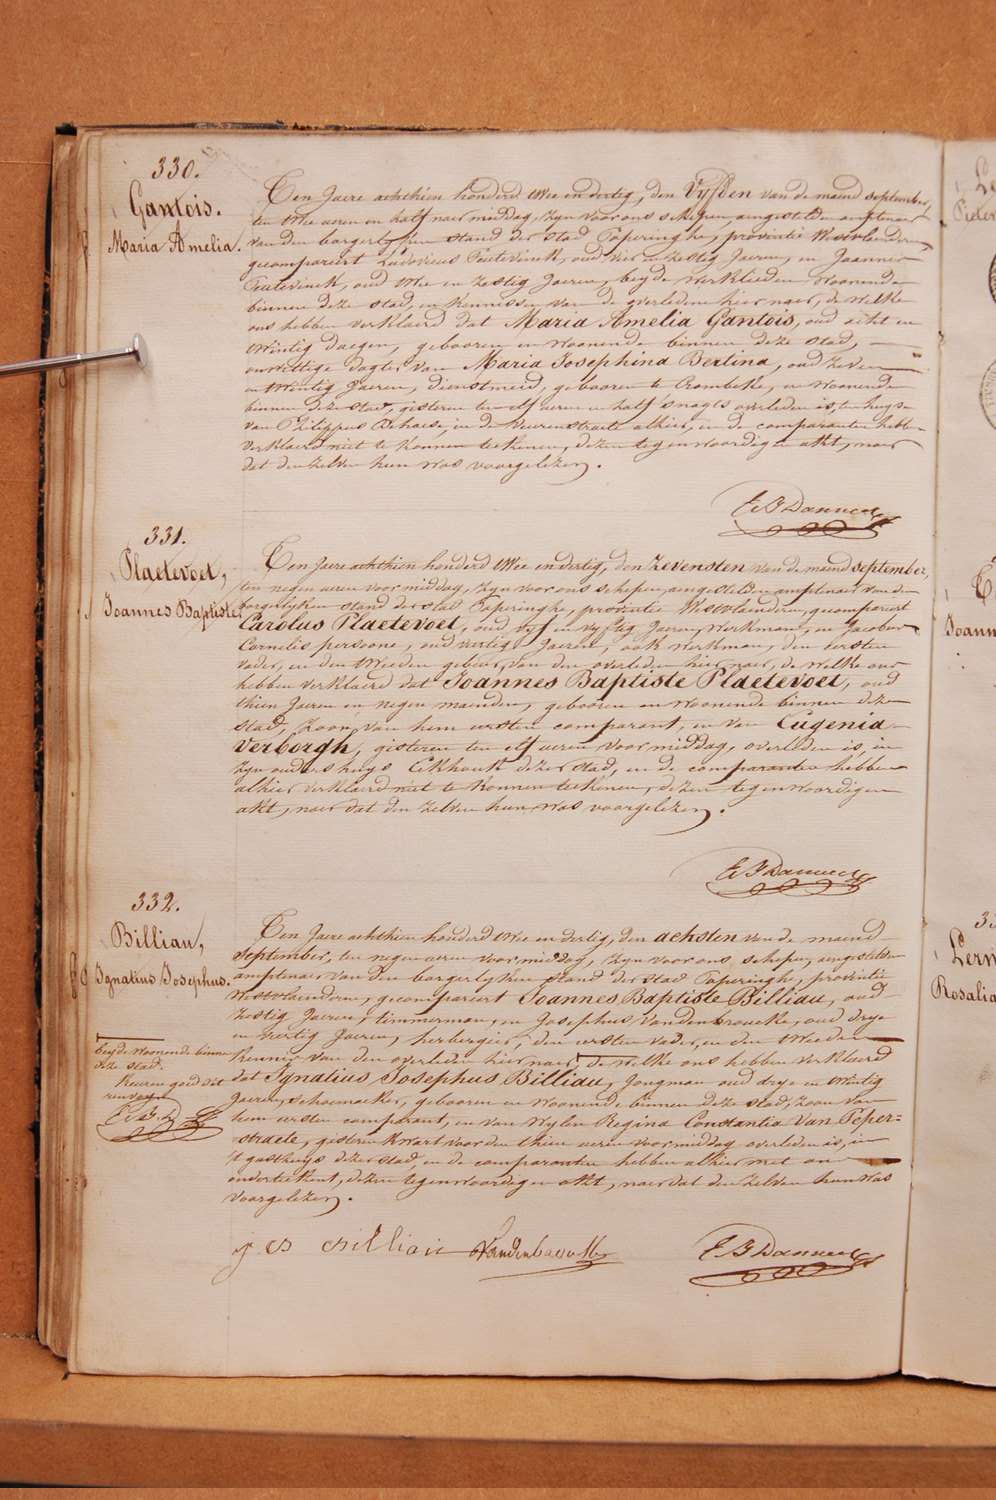 330.
Gantois.
Maria Amelia.
Ten Jaere achthien honderd twee en dertig, den Vijfden van de maend september,
ten twee uren en half naer middag, zyn voor ons schepen, aengestelden amptenaer
van den borgerlyken stand der stad Poperinghe, provintie Westvlaenderen,
gecompareert Ludovicus Outtevinck, oud vier en zestig Jaeren, en Joannes
Outtevinck, oud twee en zestig Jaeren, beyde werklieden woonende
binnen deze stad, en kennissen van de overledene hier naer, de welke
ons hebben verklaerd dat Maria Amelia Gantois, oud acht en
twintig daegen, gebooren en woonende binnen deze stad,
onwettige dogter van Maria Josephina Bertina, oud zeven
en twintig Jaeren, dienstmeid, gebooren te Crombeke, en woonende
binnen deze stad, gisteren ten elf uren en half s'nagts overleden is, ten huyse
van Philippus Dehaese, in de Veurenstraete alhier, en de comparanten hebben
verklaerd niet te konnen teekenen, dezen tegenwoordigen akt, naer
dat den zelven hun was voorgelezen.
331.
Plaetevoet,
Joannes Baptiste.
Ten Jaere achthien honderd twee en dertig, den zevensten van de maend september,
ten negen uren voor middag, zyn voor ons schepen, aengestelden amptenaer van den
borgerlyken stand der stad Poperinghe, provintie Westvlaenderen, gecompareert
Carolus Plaetevoet, oud vyf en vyftig Jaeren, werkman, en Jacobus
Cornelis persone, oud veertig Jaeren, ook werkman, den eersten
vader, en den tweeden gebuer, van den overleden hier naer, de welke ons
hebben verklaerd dat Joannes Baptiste Plaetevoet, oud
thien Jaeren en negen maenden, gebooren en woonende binnen deze
stad, zoon van hem eersten comparant, en van Eugenia
Verborgh, gisteren ten elf uren voor middag, overleden is, in
zyn ouders huys Eekhoutt dezer stad, en de comparanten hebben
alhier verklaerd niet te konnen teekenen, dezen tegenwoordigen
akt, naer dat den zelven hun was voorgelezen.
332.
Billiau,
Ignatius Josephus.
Ten Jaere achthien honderd twee en dertig, den achsten van de maend
September, ten negen uren voor middag, zyn voor ons, schepen, aengestelden
amptenaer van den borgerlyken stand der stad Poperinghe, provintie
Westvlaenderen, gecompareert Joannes Baptiste Billiau, oud
zestig Jaeren, timmerman, en Josephus Vandenbroucke, oud drye
en veertig Jaeren, herbergier, den eersten vader, en den tweeden
kennis van den overleden hier naer, de welke ons hebben verklaerd
dat Ignatius Josephus Billiau, Jongman oud drye en twintig
Jaeren, schoemaeker, gebooren en woonende binnen deze stad, zoon van
hem eersten comparant, en van wylen Regina Constantia Van Peper=
straete, gisteren kwart voor den thien uren voormiddag overleden is, in
't gasthuys dezer stad, en de comparanten hebben alhier met ons
onderteekent, dezen tegenwoordigen akt, naer dat den zelven hun was
voorgelezen.
beyde woonende binnen
deze stad.
keuren goed dit
renvoy.